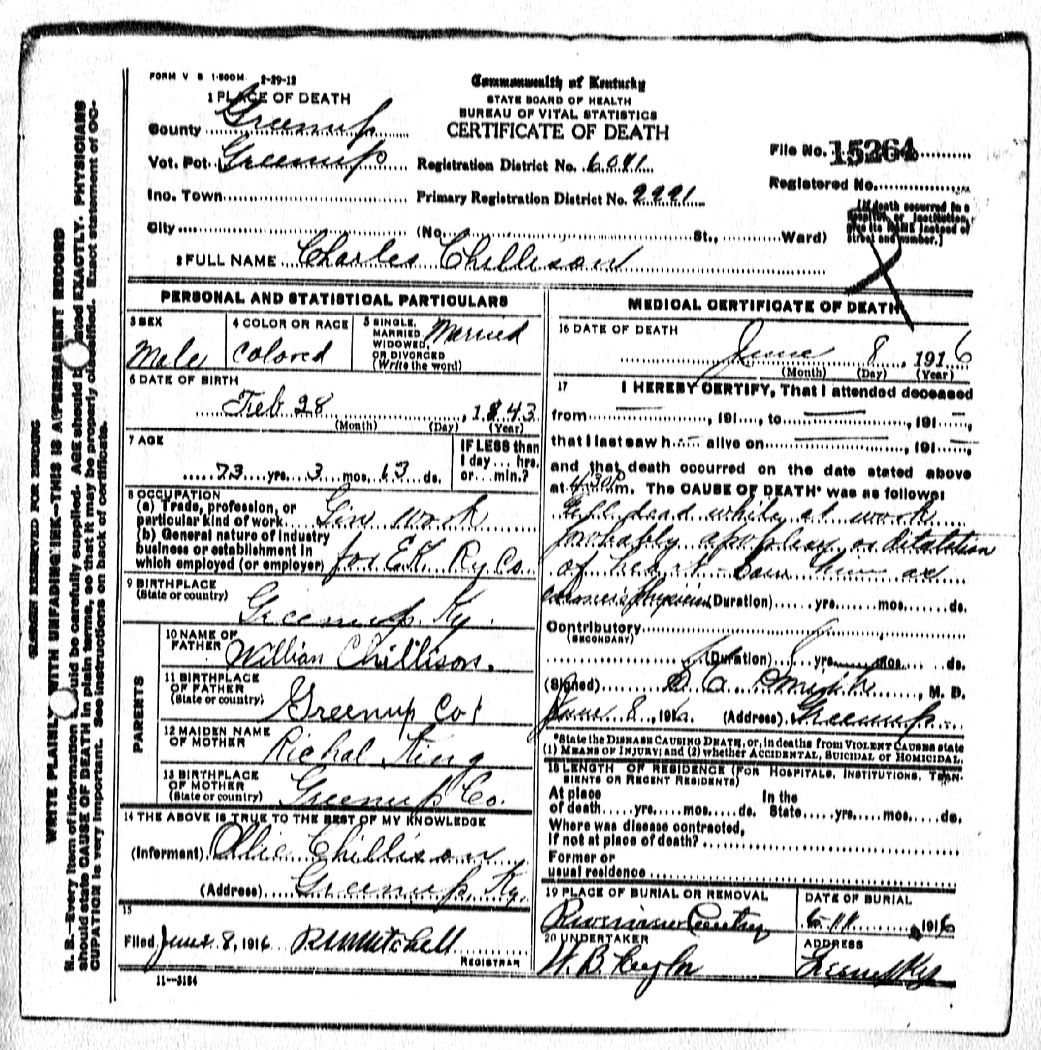 FORM V S 1-500M 2-29-12
Commonwealth of Kentucky
STATE BOARD OF HEALTH
BUREAU OF VITAL STATISTICS
CERTIFICATE OF DEATH
1 PLACE OF DEATH
County Greenup
Vot. Pct. Greenup Registration District No. 6041
File No. 15264
Inc. Town Primary Registration District No. 2221
Registered No.
City (No. St., Ward)
[If death occurred in a
hospital or institution,
give its NAME instead of
street and number.]
2 FULL NAME Charles Chillison
PERSONAL AND STATISTICAL PARTICULARS
3 SEX
Male
4 COLOR OR RACE
Colored
5 SINGLE,
MARRIED,
WIDOWED,
OR DIVORCED
(Write the word)
Married
6 DATE OF BIRTH
Feb 28, 1843
(Month) (Day) (Year)
7 AGE
73 yrs. 3 mos. 13 ds.
IF LESS than
1 day... hrs.
or... min.?
8 OCCUPATION
(a) Trade, profession, or
particular kind of work
(b) General nature of industry
business or establishment in
which employed (or employer) for E.K. Ry Co.
9 BIRTHPLACE
(State or country)
Greenup Ky.
PARENTS
10 NAME OF
FATHER
Willian Chillison.
11 BIRTHPLACE
OF FATHER
(State or country)
Greenup Co
12 MAIDEN NAME
OF MOTHER
Richal King
13 BIRTHPLACE
OF MOTHER
(State or country)
Greenup Co.
14 THE ABOVE IS TRUE TO THE BEST OF MY KNOWLEDGE
(Informant) Ollie Chillison
(Address) Greenup, Ky.
15
Filed June 8, 1916 Mitchell
REGISTRAR
11—3184
MEDICAL CERTIFICATE OF DEATH
16 DATE OF DEATH
June 8, 1916
(Month) (Day) (Year)
17 I HEREBY CERTIFY, That I attended deceased
from , 191 , to , 191
that I last saw h alive on , 191
and that death occurred on the date stated above
at 4:30 P m. The CAUSE OF DEATH* was as follows:
Fell dead while at work
probably apoplexy or dilatation
of heart
(Duration) yrs. mos. ds.
Contributory
(SECONDARY)
(Duration) yrs. mos. ds.
(Signed) , M. D.
June 8, 1916 (Address) Greenup
*State the DISEASE CAUSING DEATH, or, in deaths from VIOLENT CAUSES state
(1) MEANS OF INJURY; and (2) whether ACCIDENTAL, SUICIDAL OR HOMICIDAL.
18 LENGTH OF RESIDENCE (FOR HOSPITALS, INSTITUTIONS, TRANSIENTS OR RECENT RESIDENTS)
At place In the
of death yrs. mos. ds. State yrs. mos. ds.
Where was disease contracted,
If not at place of death?
Former or
usual residence
19 PLACE OF BURIAL OR REMOVAL
DATE OF BURIAL
6-11 1916
20 UNDERTAKER
W. B. Taylor
ADDRESS
Greenup Ky
MARGIN RESERVED FOR BINDING
WRITE PLAINLY WITH UNFADING INK—THIS IS A PERMANENT RECORD
N. B.—Every item of information should be carefully supplied. AGE should be stated EXACTLY. PHYSICIANS
should state CAUSE OF DEATH in plain terms, so that it may be properly classified. Exact statement of OC-
CUPATION is very important. See instructions on back of certificate.